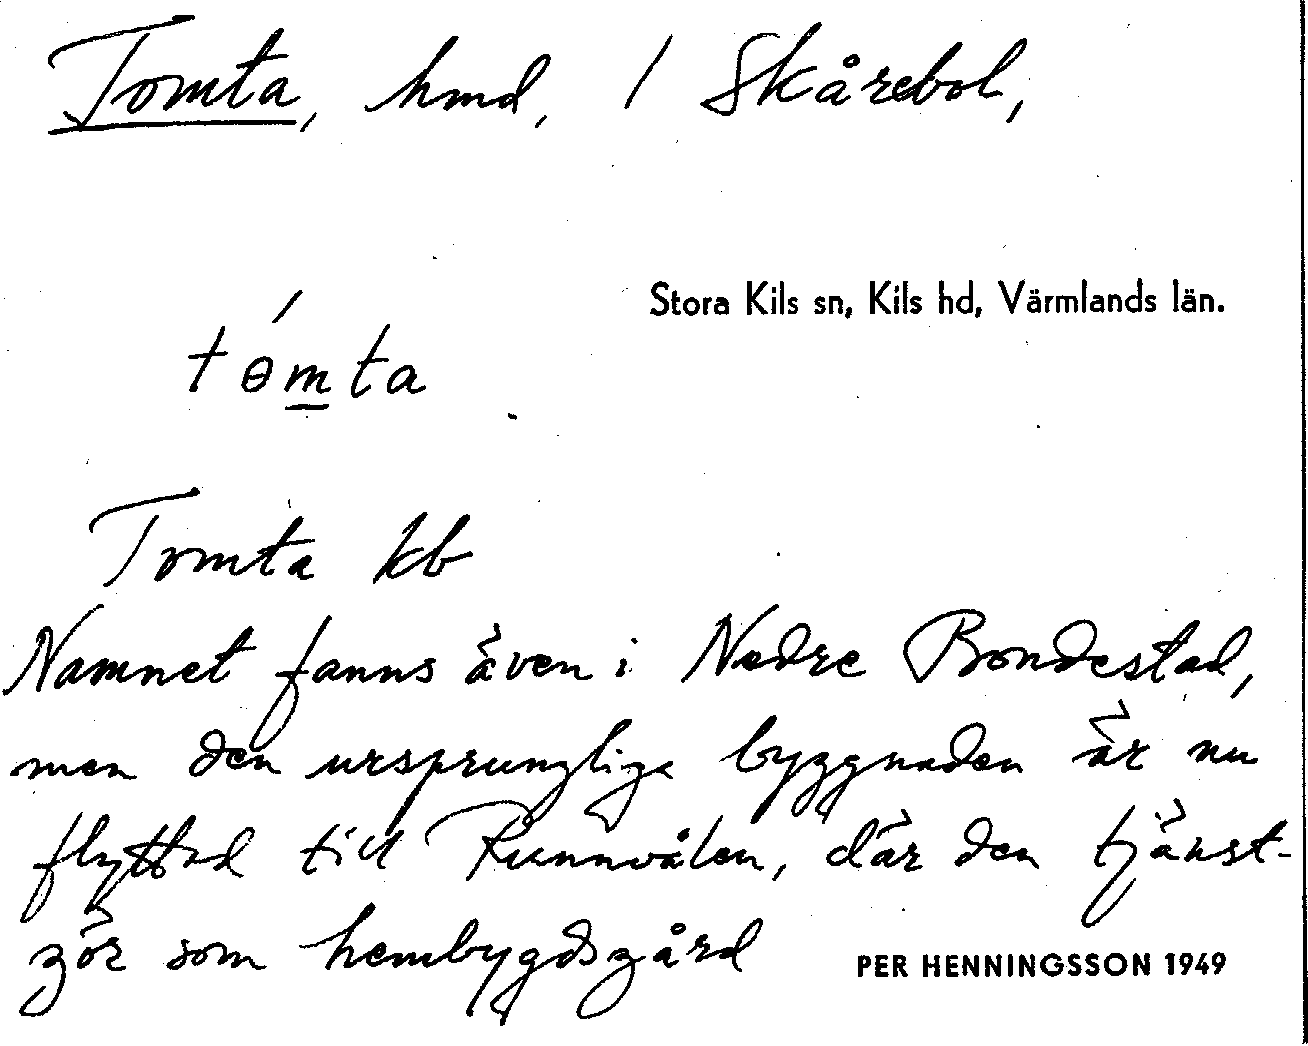 Tomta, hmd, / Skårebol,
Stora Kils sn, Kils hd, Värmlands län.
tɵ́m̲ta
Tomta kb
Namnet fanns även i Nedre Bondestad,
men den ursprungliga byggnaden är nu
flyttad till Runnvålen, där den tjänst-
gör som hembygdsgård
PER HENNINGSSON 1949